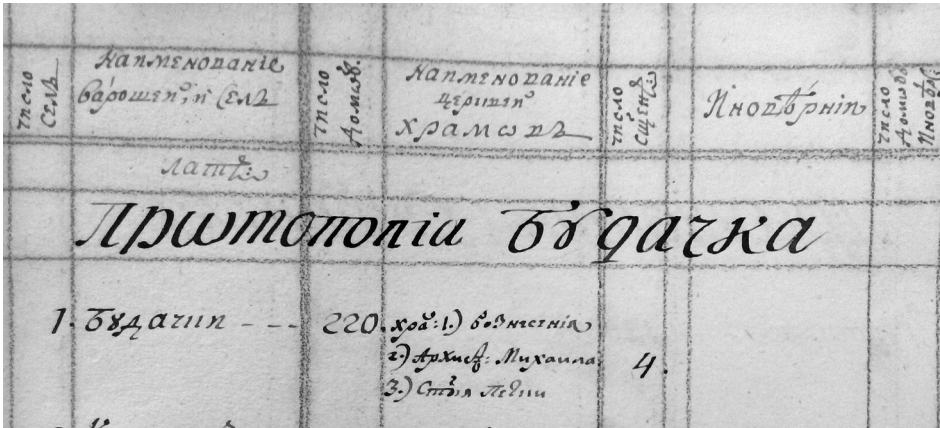 число Селъ
Наименованіе варошей, и Селъ
число Домωв.
Наименованіе церквей Храмωвъ
число сщенѣ:
Иновѣрніи
число Домωв. Иновѣр
Прωтопопіа Бꙋдачка
1. Бꙋдачки - - - 220. хра: 1.) вознесенія
2.) Архистр: Михаила 4.
3.) Стыя Петки